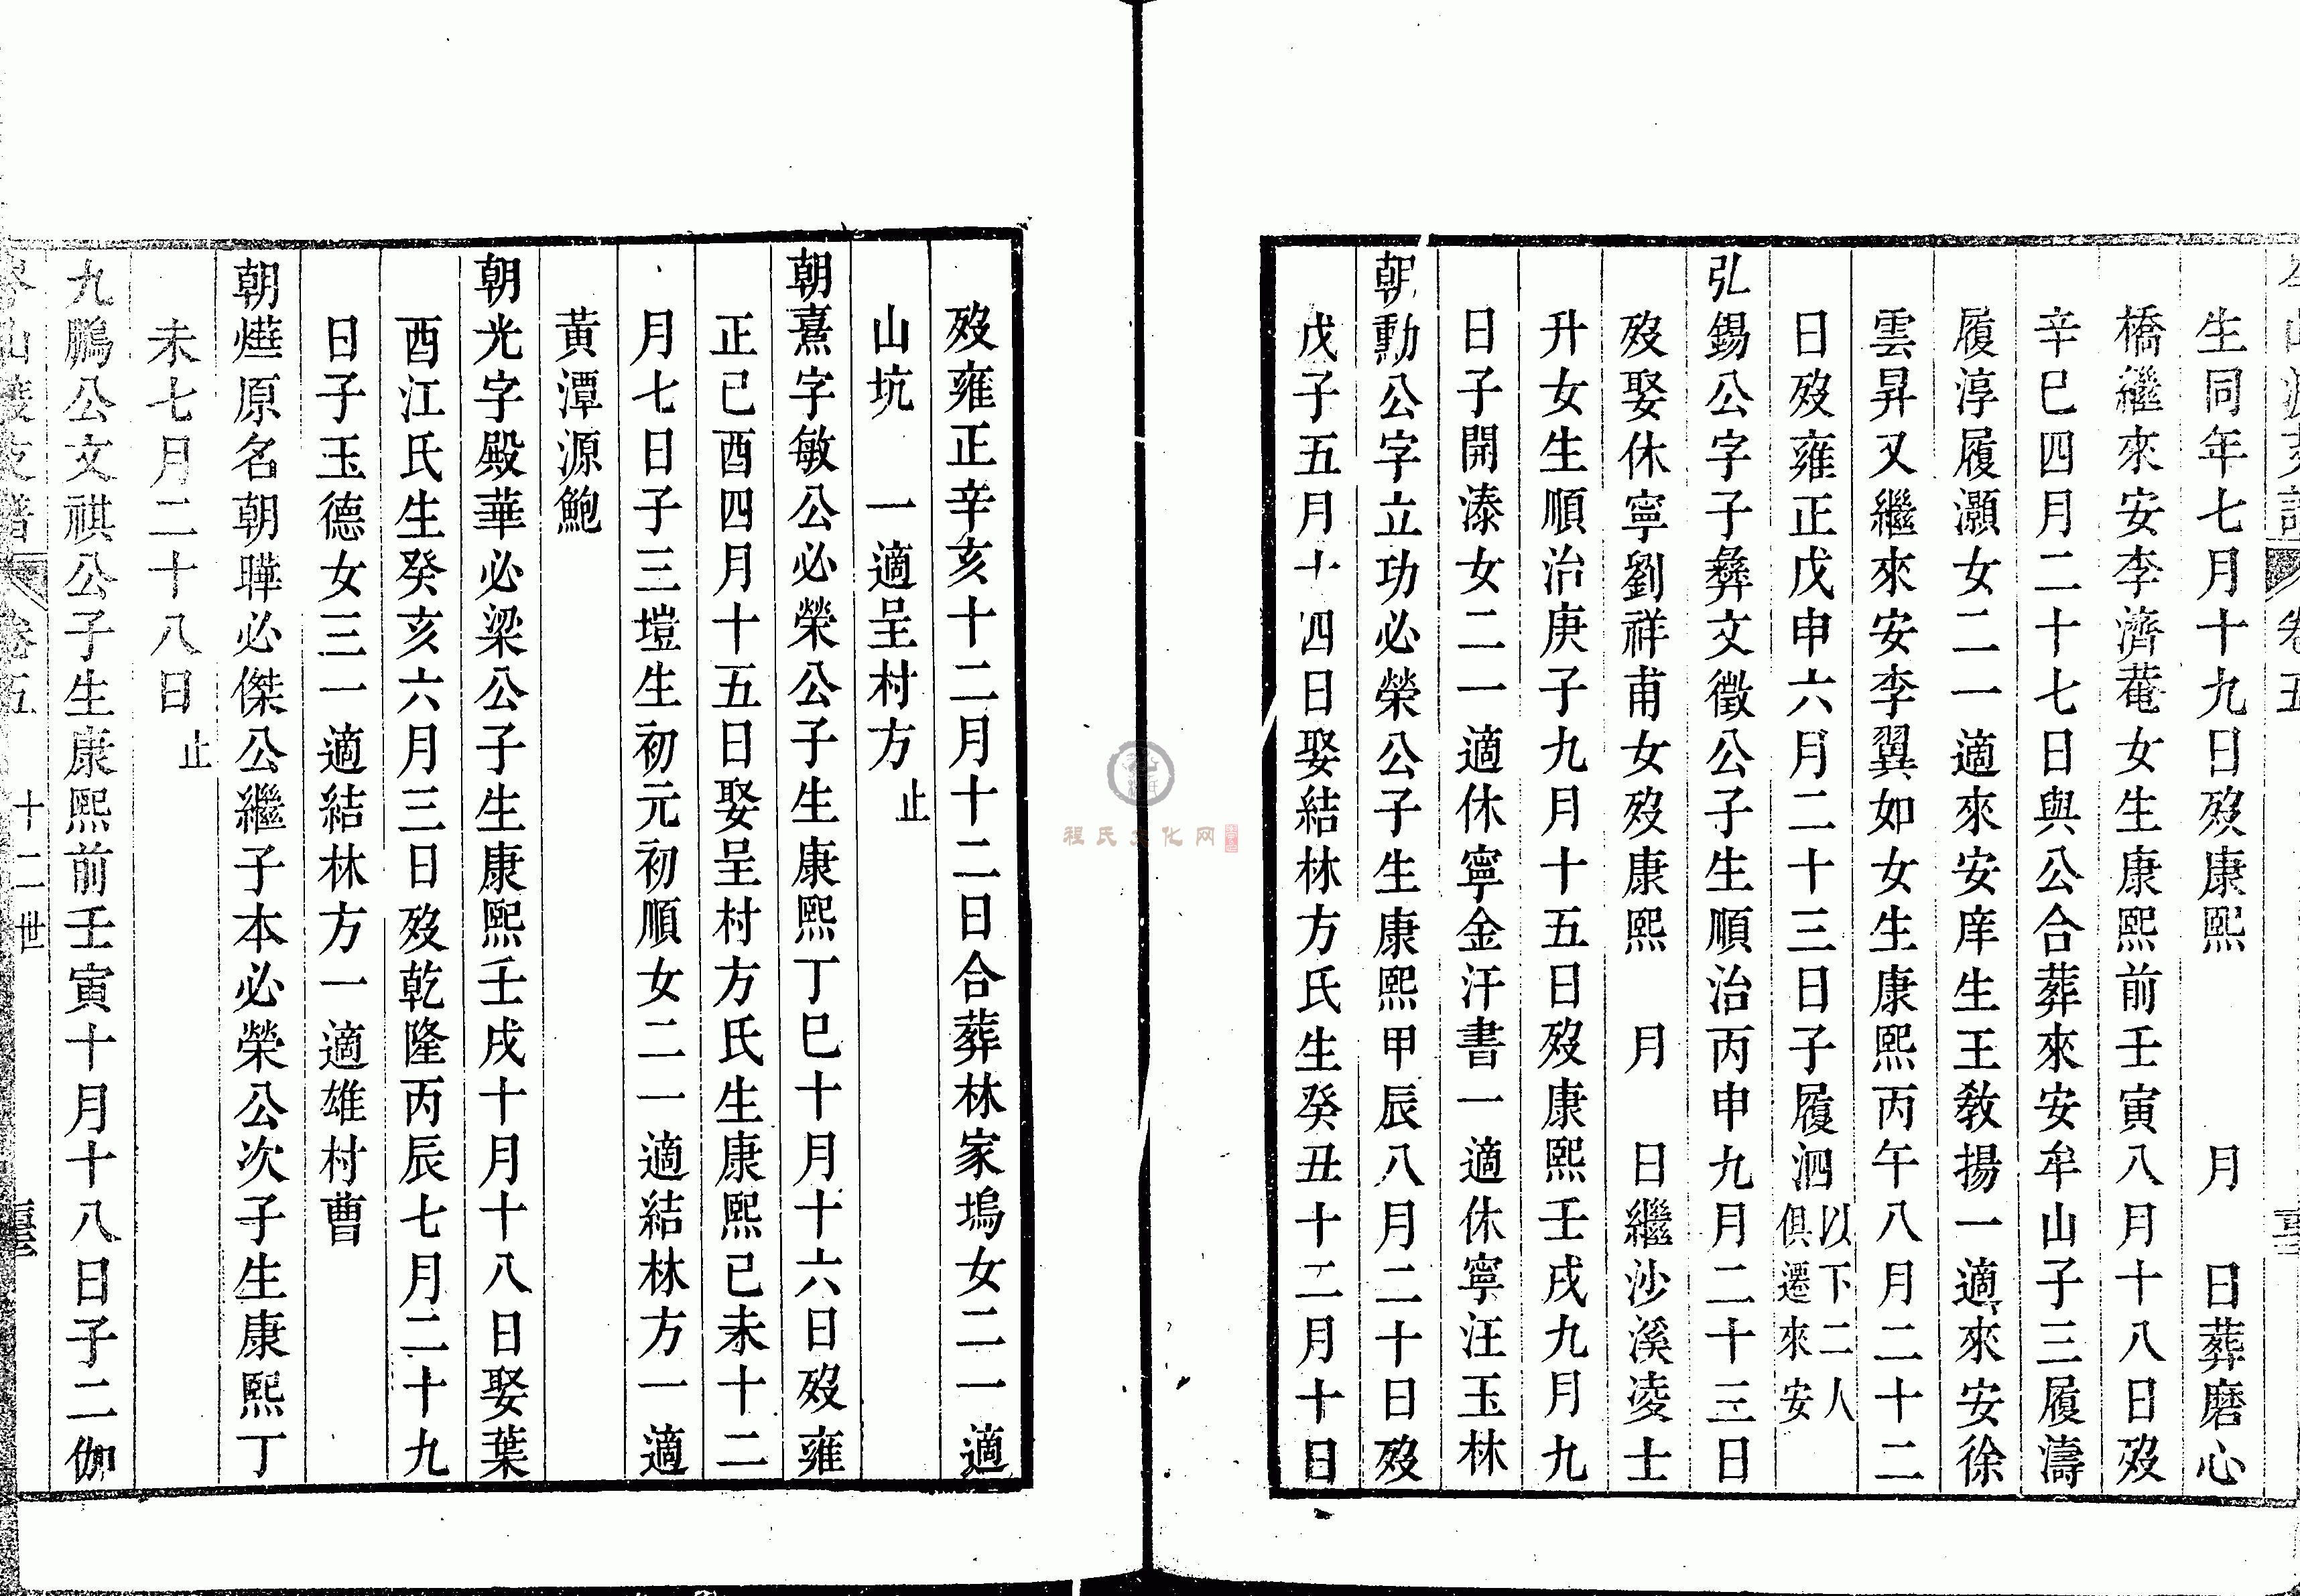 生同年七月十九日歿康熙 月 日葬磨心
橋繼來安李濟菴女生康熙前壬寅八月十八日歿
辛巳四月二十七日與公合葬來安牟山子三履濤
履淳履灝女二一適來安庠生王教揚一適來安徐
雲昇又繼來安李翼如女生康熙丙午八月二十二
日歿雍正戊申六月二十三日子履泗以下二人俱遷來安
弘錫公字子彝文徵公子生順治丙申九月二十三日
歿娶休寧劉祥甫女歿康熙 月 日繼沙溪凌士
升女生順治庚子九月十五日歿康熙壬戌九月九
日子開溱女二一適休寧金汗書一適休寧汪玉林
朝勳公字立功必榮公子生康熙甲辰八月二十日歿
戊子五月十四日娶結林方氏生癸丑十二月十日
歿雍正辛亥十二月十二日合葬林家塢女二一適
山坑 一適呈村方止
朝熹字敏公必榮公子生康熙丁巳十月十六日歿雍
正己酉四月十五日娶呈村方氏生康熙己未十二
月七日子三塏生初元初順女二一適結林方一適
黃潭源鮑
朝光字殿華必梁公子生康熙壬戌十月十八日娶葉
酉江氏生癸亥六月三日歿乾隆丙辰七月二十九
日子玉德女三一適結林方一適雄村曹
朝爗原名朝曄必傑公繼子本必榮公次子生康熙丁
未七月二十八日止
九鵬公文祺公子生康熙前壬寅十月十八日子二伽
卷五 十二世
程氏文化网